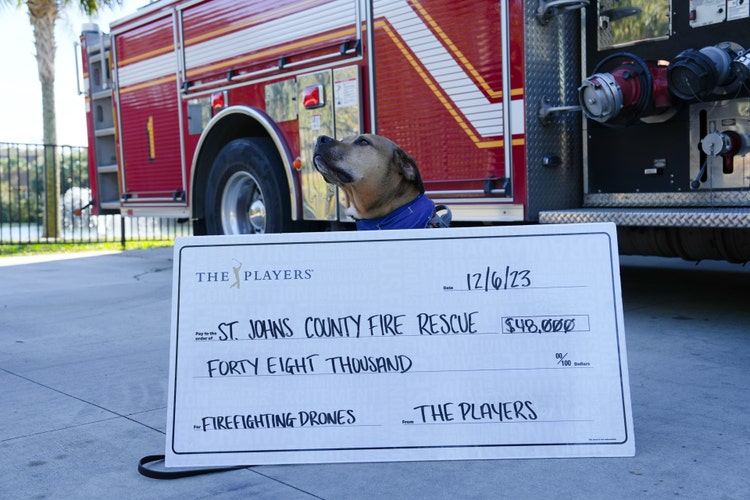 1
THE PLAYERS
Date 12/6/23
Pay to the order of ST. JOHNS COUNTY FIRE RESCUE $48,000
FORTY EIGHT THOUSAND 00/100 Dollars
For FIREFIGHTING DRONES From THE PLAYERS